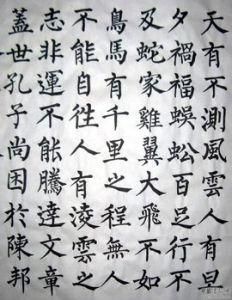 天有不測風雲人有旦
夕禍福蜈蚣百足行不
及蛇家雞翼大飛不如
鳥馬有千里之程無人
不能自徃人有淩雲之
志非運不能騰達文章
蓋世孔子尚困於陳邦